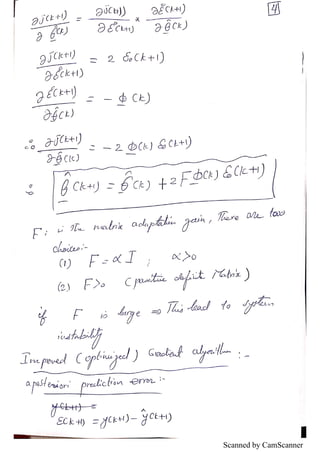 4
∂J(k+1) / ∂θ̂(k) = ∂J(k+1) / ∂ε°(k+1) * ∂ε°(k+1) / ∂θ̂(k)
∂J(k+1) / ∂ε°(k+1) = 2 ε°(k+1)
∂ε°(k+1) / ∂θ̂(k) = - Φ(k)
∴ ∂J(k+1) / ∂θ̂(k) = - 2 Φ(k) ε°(k+1)
∴ θ̂(k+1) = θ̂(k) + 2FΦ(k) ε°(k+1)
F: is the matrix adaptation gain, There are two
choices:-
(1) F = αI ; α>0
(2) F>0 (positive definit Matrix)
if F is large ⇒ This lead to system
instability
Improved (optimized) Gradient algorithm :-
a posteriori prediction error:-
y(k+1) =
ε(k+1) = y(k+1) - ŷ(k+1)
Scanned by CamScanner